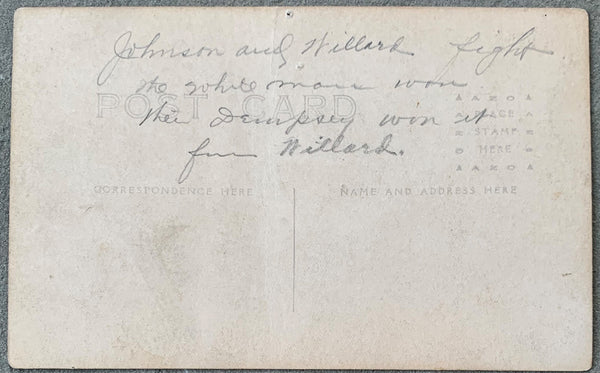 Johnson and Willard fight
the white man won
POST CARD
then Dempsey won it
from Willard.
AZO
PLACE
STAMP
HERE
AZO
CORRESPONDENCE HERE
NAME AND ADDRESS HERE